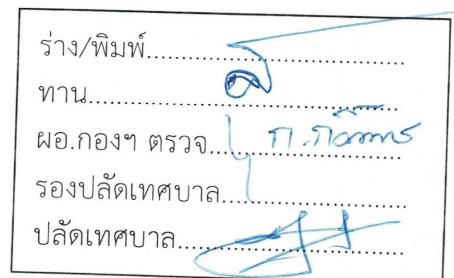 ร่าง/พิมพ์..............................
ทาน..............................
ผอ.กองฯ ตรวจ..............................
รองปลัดเทศบาล..............................
ปลัดเทศบาล..............................